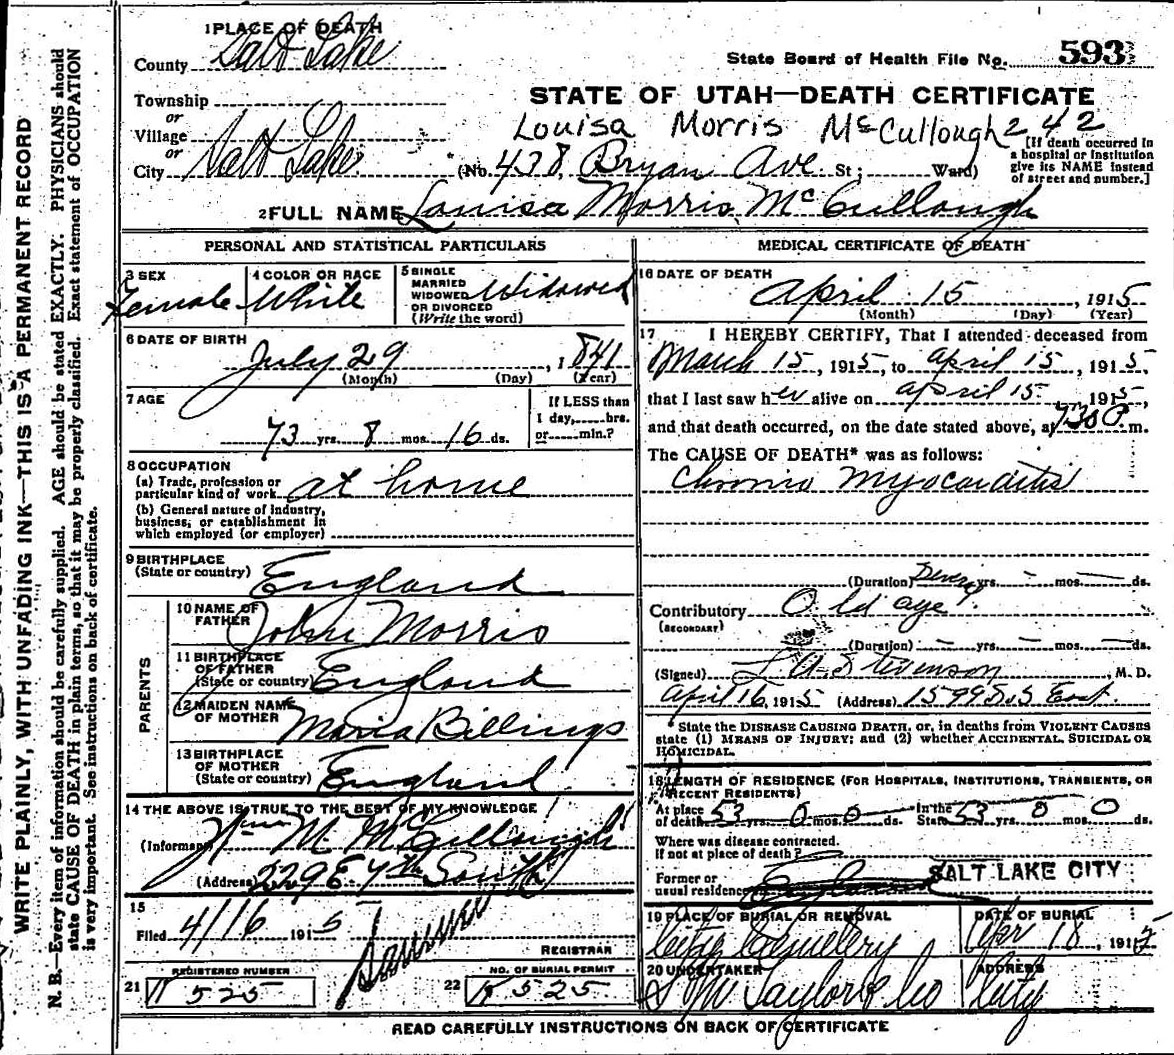 WRITE PLAINLY, WITH UNFADING INK—THIS IS A PERMANENT RECORD
N. B.—Every item of information should be carefully supplied. AGE should be stated EXACTLY. PHYSICIANS should
state CAUSE OF DEATH in plain terms, so that it may be properly classified. Exact statement of OCCUPATION
is very important. See instructions on back of certificate.
1 PLACE OF DEATH
County Salt Lake
State Board of Health File No. 593
Township
or
Village
or
City Salt Lake
STATE OF UTAH—DEATH CERTIFICATE
Louisa Morris McCullough 242
(No. 438 Bryan Ave. St; Ward)
[If death occurred in
a hospital or institution
give its NAME instead
of street and number.]
2 FULL NAME Louisa Morris McCullough
PERSONAL AND STATISTICAL PARTICULARS
3 SEX
Female
4 COLOR OR RACE
White
5 SINGLE
MARRIED
WIDOWED
OR DIVORCED
(Write the word)
Widowed
6 DATE OF BIRTH
July 29, 1841
(Month) (Day) (Year)
7 AGE
73 yrs. 8 mos. 16 ds.
If LESS than
1 day, hrs.
or min.?
8 OCCUPATION
(a) Trade, profession or
particular kind of work at home
(b) General nature of industry,
business, or establishment in
which employed (or employer)
9 BIRTHPLACE
(State or country) England
PARENTS
10 NAME OF
FATHER John Morris
11 BIRTHPLACE
OF FATHER
(State or country) England
12 MAIDEN NAME
OF MOTHER Maria Billings
13 BIRTHPLACE
OF MOTHER
(State or country) England
14 THE ABOVE IS TRUE TO THE BEST OF MY KNOWLEDGE
(Informant) Wm M McCullough
(Address) 229 E 4th South
15
Filed 4/16 1915
REGISTRAR
REGISTERED NUMBER
21 525
NO. OF BURIAL PERMIT
22 525
MEDICAL CERTIFICATE OF DEATH
16 DATE OF DEATH
April 15, 1915
(Month) (Day) (Year)
17 I HEREBY CERTIFY, That I attended deceased from
March 15, 1915, to April 15, 1915,
that I last saw her alive on April 15, 1915,
and that death occurred, on the date stated above, at 730 P. m.
The CAUSE OF DEATH* was as follows:
Chronic Myocarditis
(Duration) Several yrs. – mos. – ds.
Contributory Old age.
(SECONDARY)
(Duration) – yrs. – mos. – ds.
(Signed) L A Stevenson, M. D.
April 16, 1915 (Address) 1599 S. 5 East.
*State the DISEASE CAUSING DEATH, or, in deaths from VIOLENT CAUSES
state (1) MEANS OF INJURY; and (2) whether ACCIDENTAL, SUICIDAL OR
HOMICIDAL.
18 LENGTH OF RESIDENCE (FOR HOSPITALS, INSTITUTIONS, TRANSIENTS, OR
RECENT RESIDENTS)
At place
of death 53 yrs. 0 mos. 0 ds.
In the
State 53 yrs. 0 mos. 0 ds.
Where was disease contracted.
If not at place of death?
Former or
usual residence England SALT LAKE CITY
19 PLACE OF BURIAL OR REMOVAL
City Cemetery
DATE OF BURIAL
Apr 18, 1915
20 UNDERTAKER
S M Taylor & Co
ADDRESS
City
READ CAREFULLY INSTRUCTIONS ON BACK OF CERTIFICATE